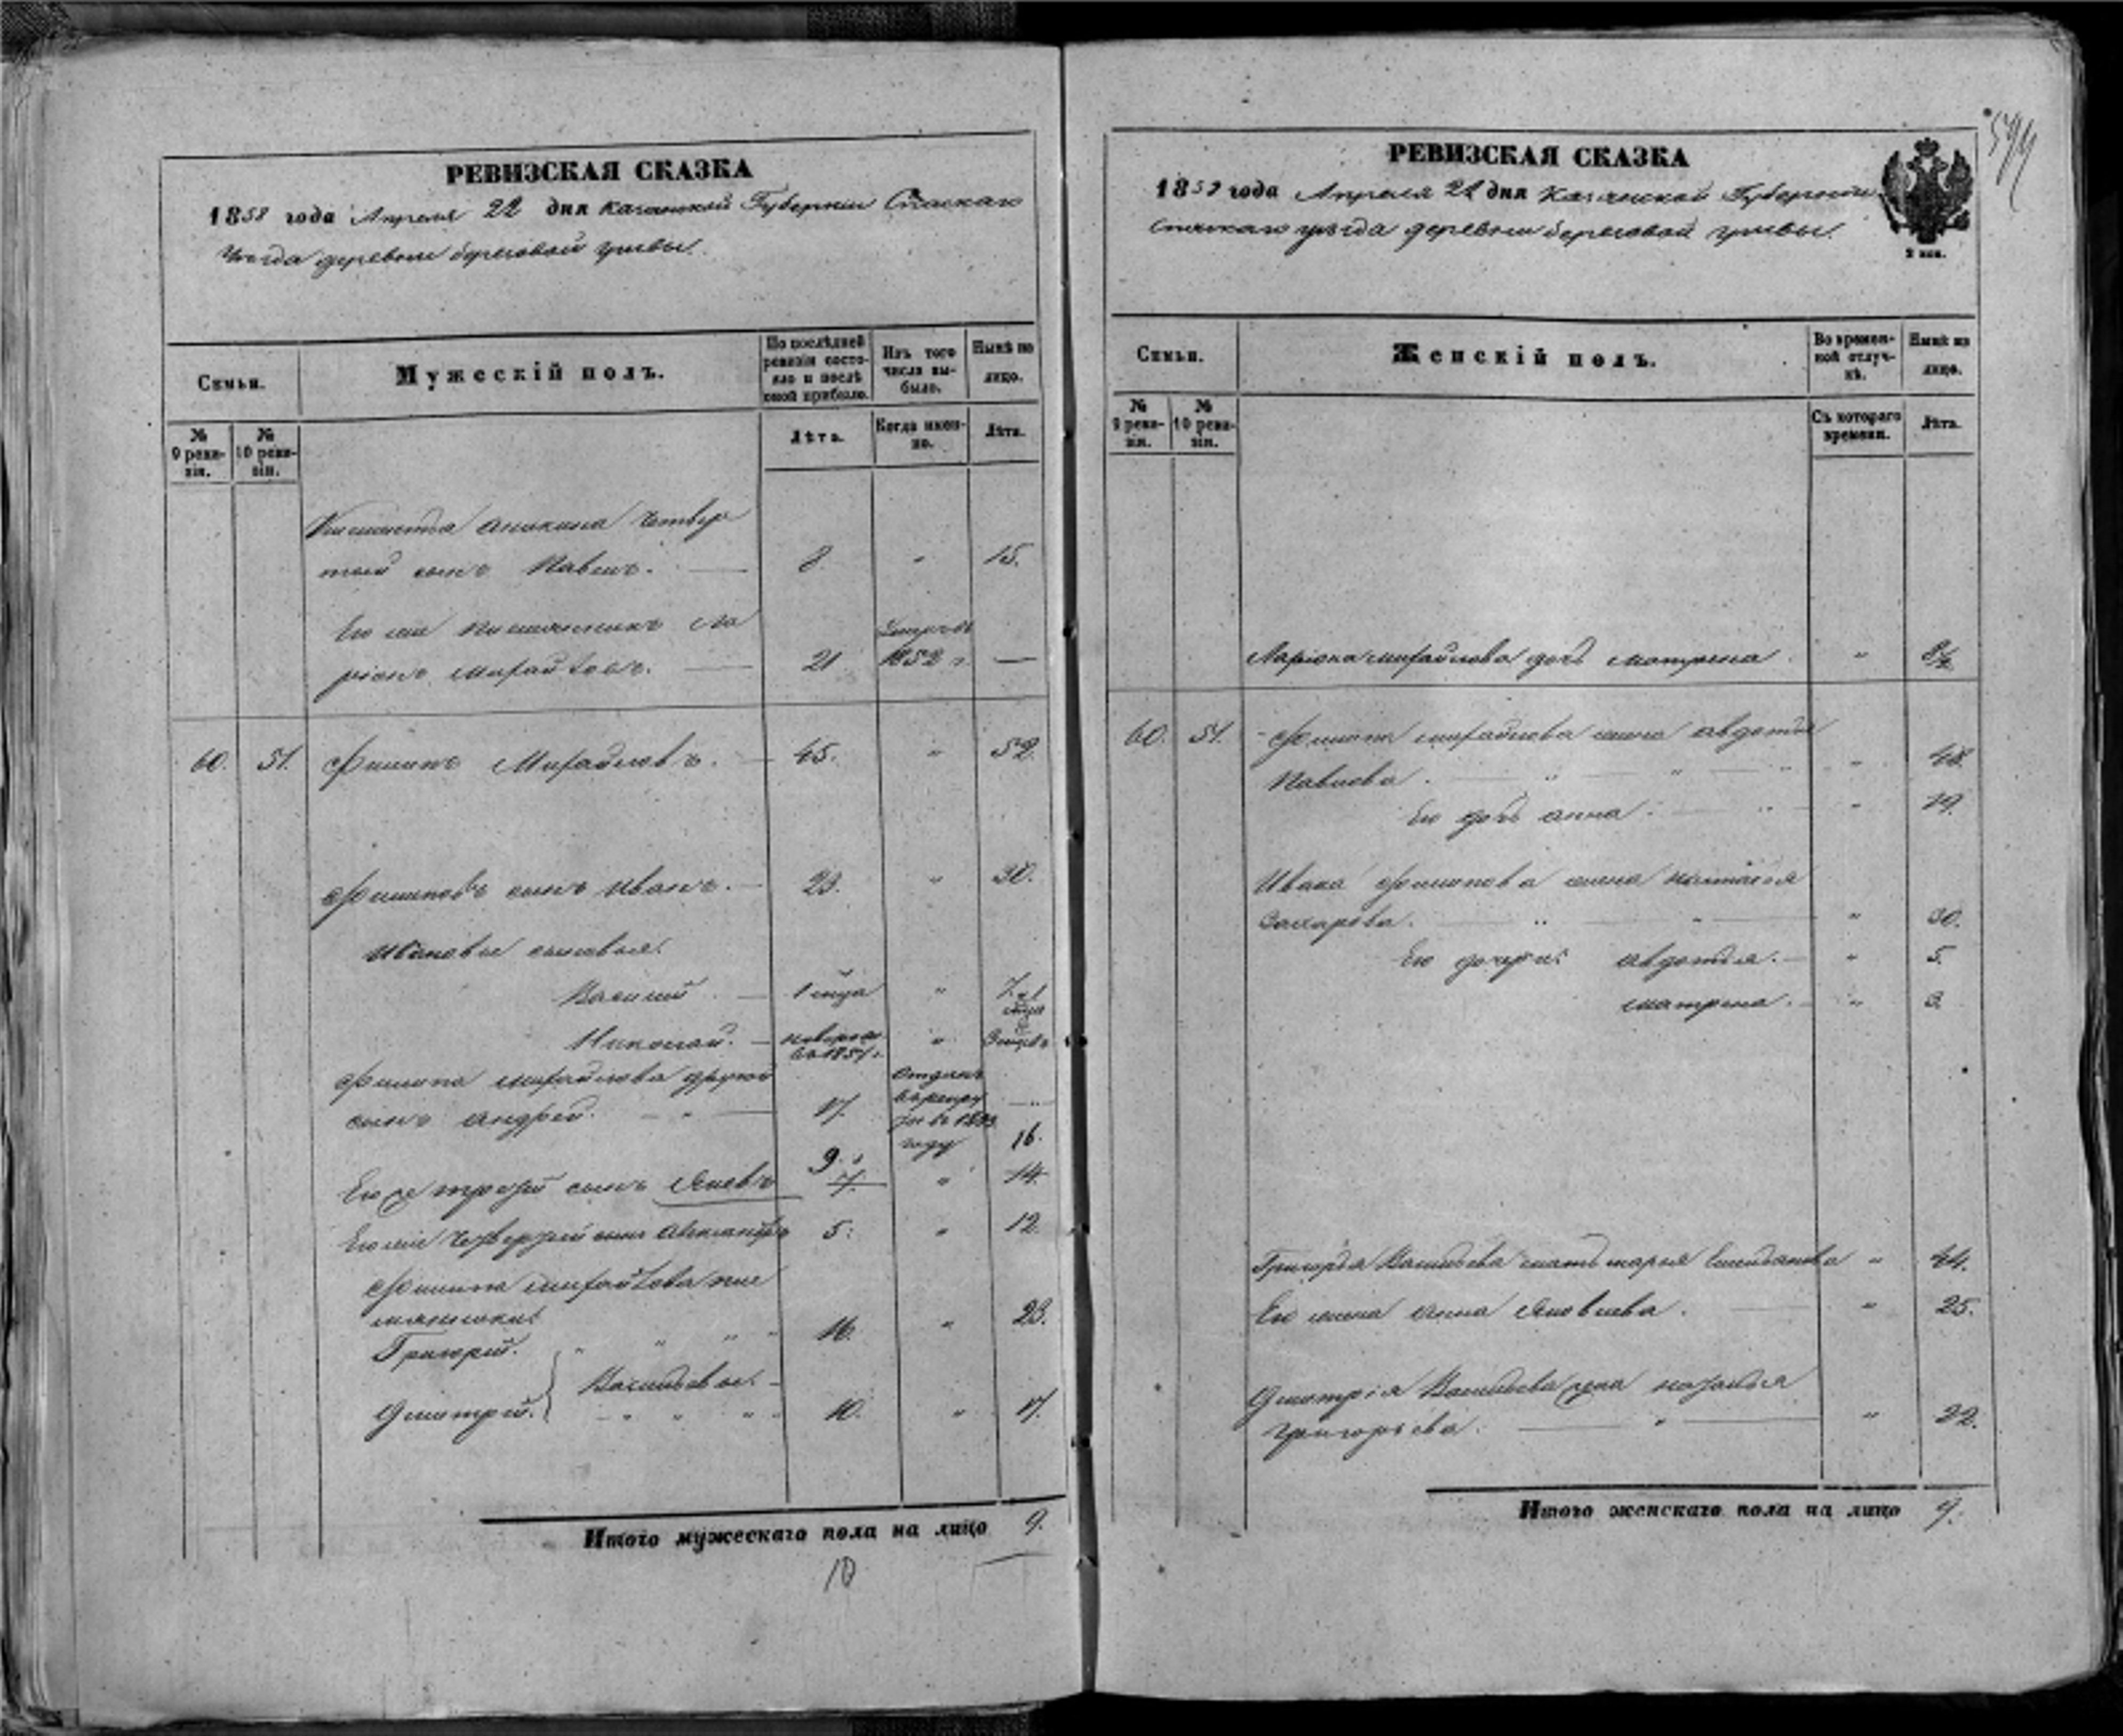 РЕВИЗСКАЯ СКАЗКА
1858 года Апреля 22 дня Казанской Губернии Спаскаго
Уезда деревни береговой
Семьи.
Мужескій полъ.
По послѣдней ревизіи состояло и послѣ оной прибыло.
Изъ того числа выбыло.
Нынѣ на лицо.
№ 9 ревизіи.
№ 10 ревизіи.
Лѣта.
Когда именно.
Лѣта.
аникина четвер
той сынъ Павелъ. 8 " 15.
Его же племянникъ Ла
ріонъ михайловъ. 21 1852 г. —
60. 51. Филипъ Михайловъ. 45. " 52.
Филиповъ сынъ Иванъ. 23. " 30.
Ивановы сыновья:
Василий 1 "
Николай. "
Филипа михайлова другой
сынъ андрей. 17. отданъ
году
Его же третій сынъ Яковъ 9. 7. " 16. 14.
Его же четвертый сынъ Александръ 5. " 12.
Филипа михайлова пле
мянники:
Григорій. 16. " 23.
Васильевы.
Дмитрій. 10. " 17.
Итого мужескаго пола на лицо 9.
10
РЕВИЗСКАЯ СКАЗКА
1858 года Апреля 22 дня Казанской Губернии
Спаскаго уезда деревни береговой
2 коп.
Семьи.
Женскій полъ.
Во временной отлучкѣ.
Нынѣ на лицо.
№ 9 ревизіи.
№ 10 ревизіи.
Съ котораго времени.
Лѣта.
Ларіона михайлова дочь матрена "
60. 51. Филипа михайлова жена авдотья
Павлова. " 48.
Его дочь анна. " 19.
Ивана Филипова жена настасья
Захарова. " 30.
Его дочери: авдотья. " 5.
матрена. " 3.
Григорья Васильева мать марья " 44.
Его жена анна Яковлева. " 25.
Дмитрія Васильева жена наталья
григорьева. " 22.
Итого женскаго пола на лицо 9.